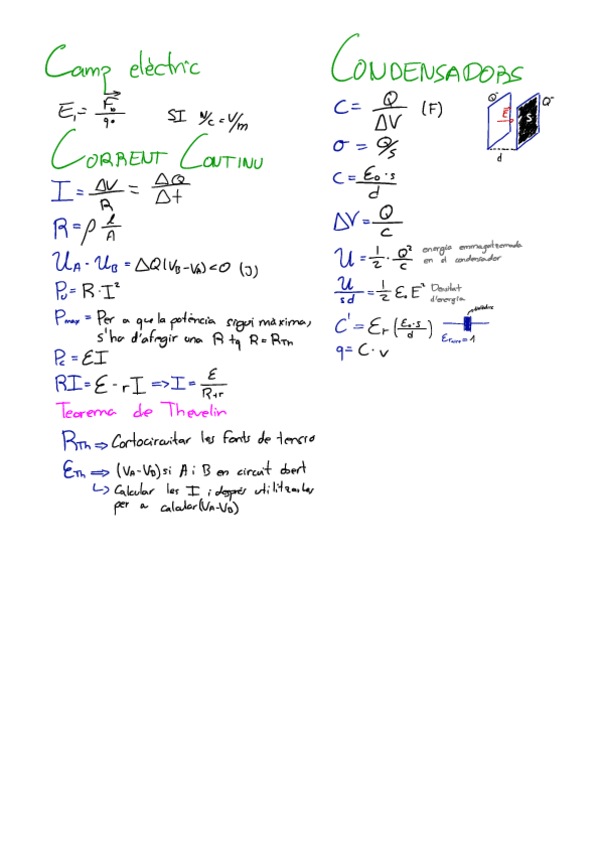 Camp elèctric
E₁ = F₀/q⁰ SI N/C = V/m
CORRENT CONTINU
I = ΔV/R = ΔQ/Δt
R = ρ l/A
U_A - U_B = ΔQ(V_B - V_A) < 0 (J)
P_U = R · I²
P_max = Per a que la potència sigui màxima,
s'ha d'afegir una R tq R = R_Th
P_E = ƐI
RI = Ɛ - rI => I = Ɛ/R+r
Teorema de Thevelin
R_Th => Cortocircuitar les fonts de tensió
Ɛ_Th => (V_A-V_B) si A i B en circuit obert
↳ Calcular les I i després utilitzar-les
per a calcular (V_A-V_B)
CONDENSADORS
C = Q/ΔV (F)
σ = Q/S
C = Ɛ₀·s/d
ΔV = Q/C
U = 1/2 · Q²/C energía emmagatzemada
en el condensador
U/sd = 1/2 Ɛ₀ E² Densitat
d'energía
C' = Ɛr (Ɛ₀·s/d)
Ɛr aire = 1
q = C · V
Q Q⁻
E S
d